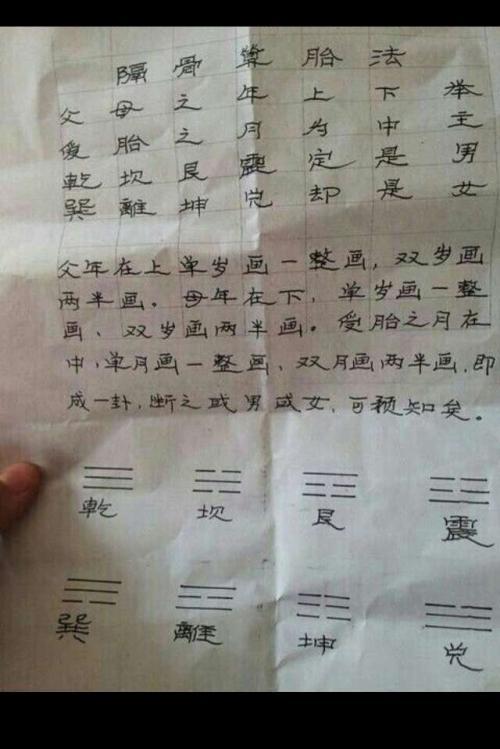 隔骨算胎法
父母之年上下举
爱胎之月为中主
乾坎艮震定是男
巽離坤兑却是女
父年在上单岁画一整画，双岁画
两半画。母年在下，单岁画一整
画、双岁画两半画。受胎之月在
中，单月画一整画、双月画两半画，即
成一卦，断之或男或女，可预知矣。
乾 坎 艮 震
巽 離 坤 兑